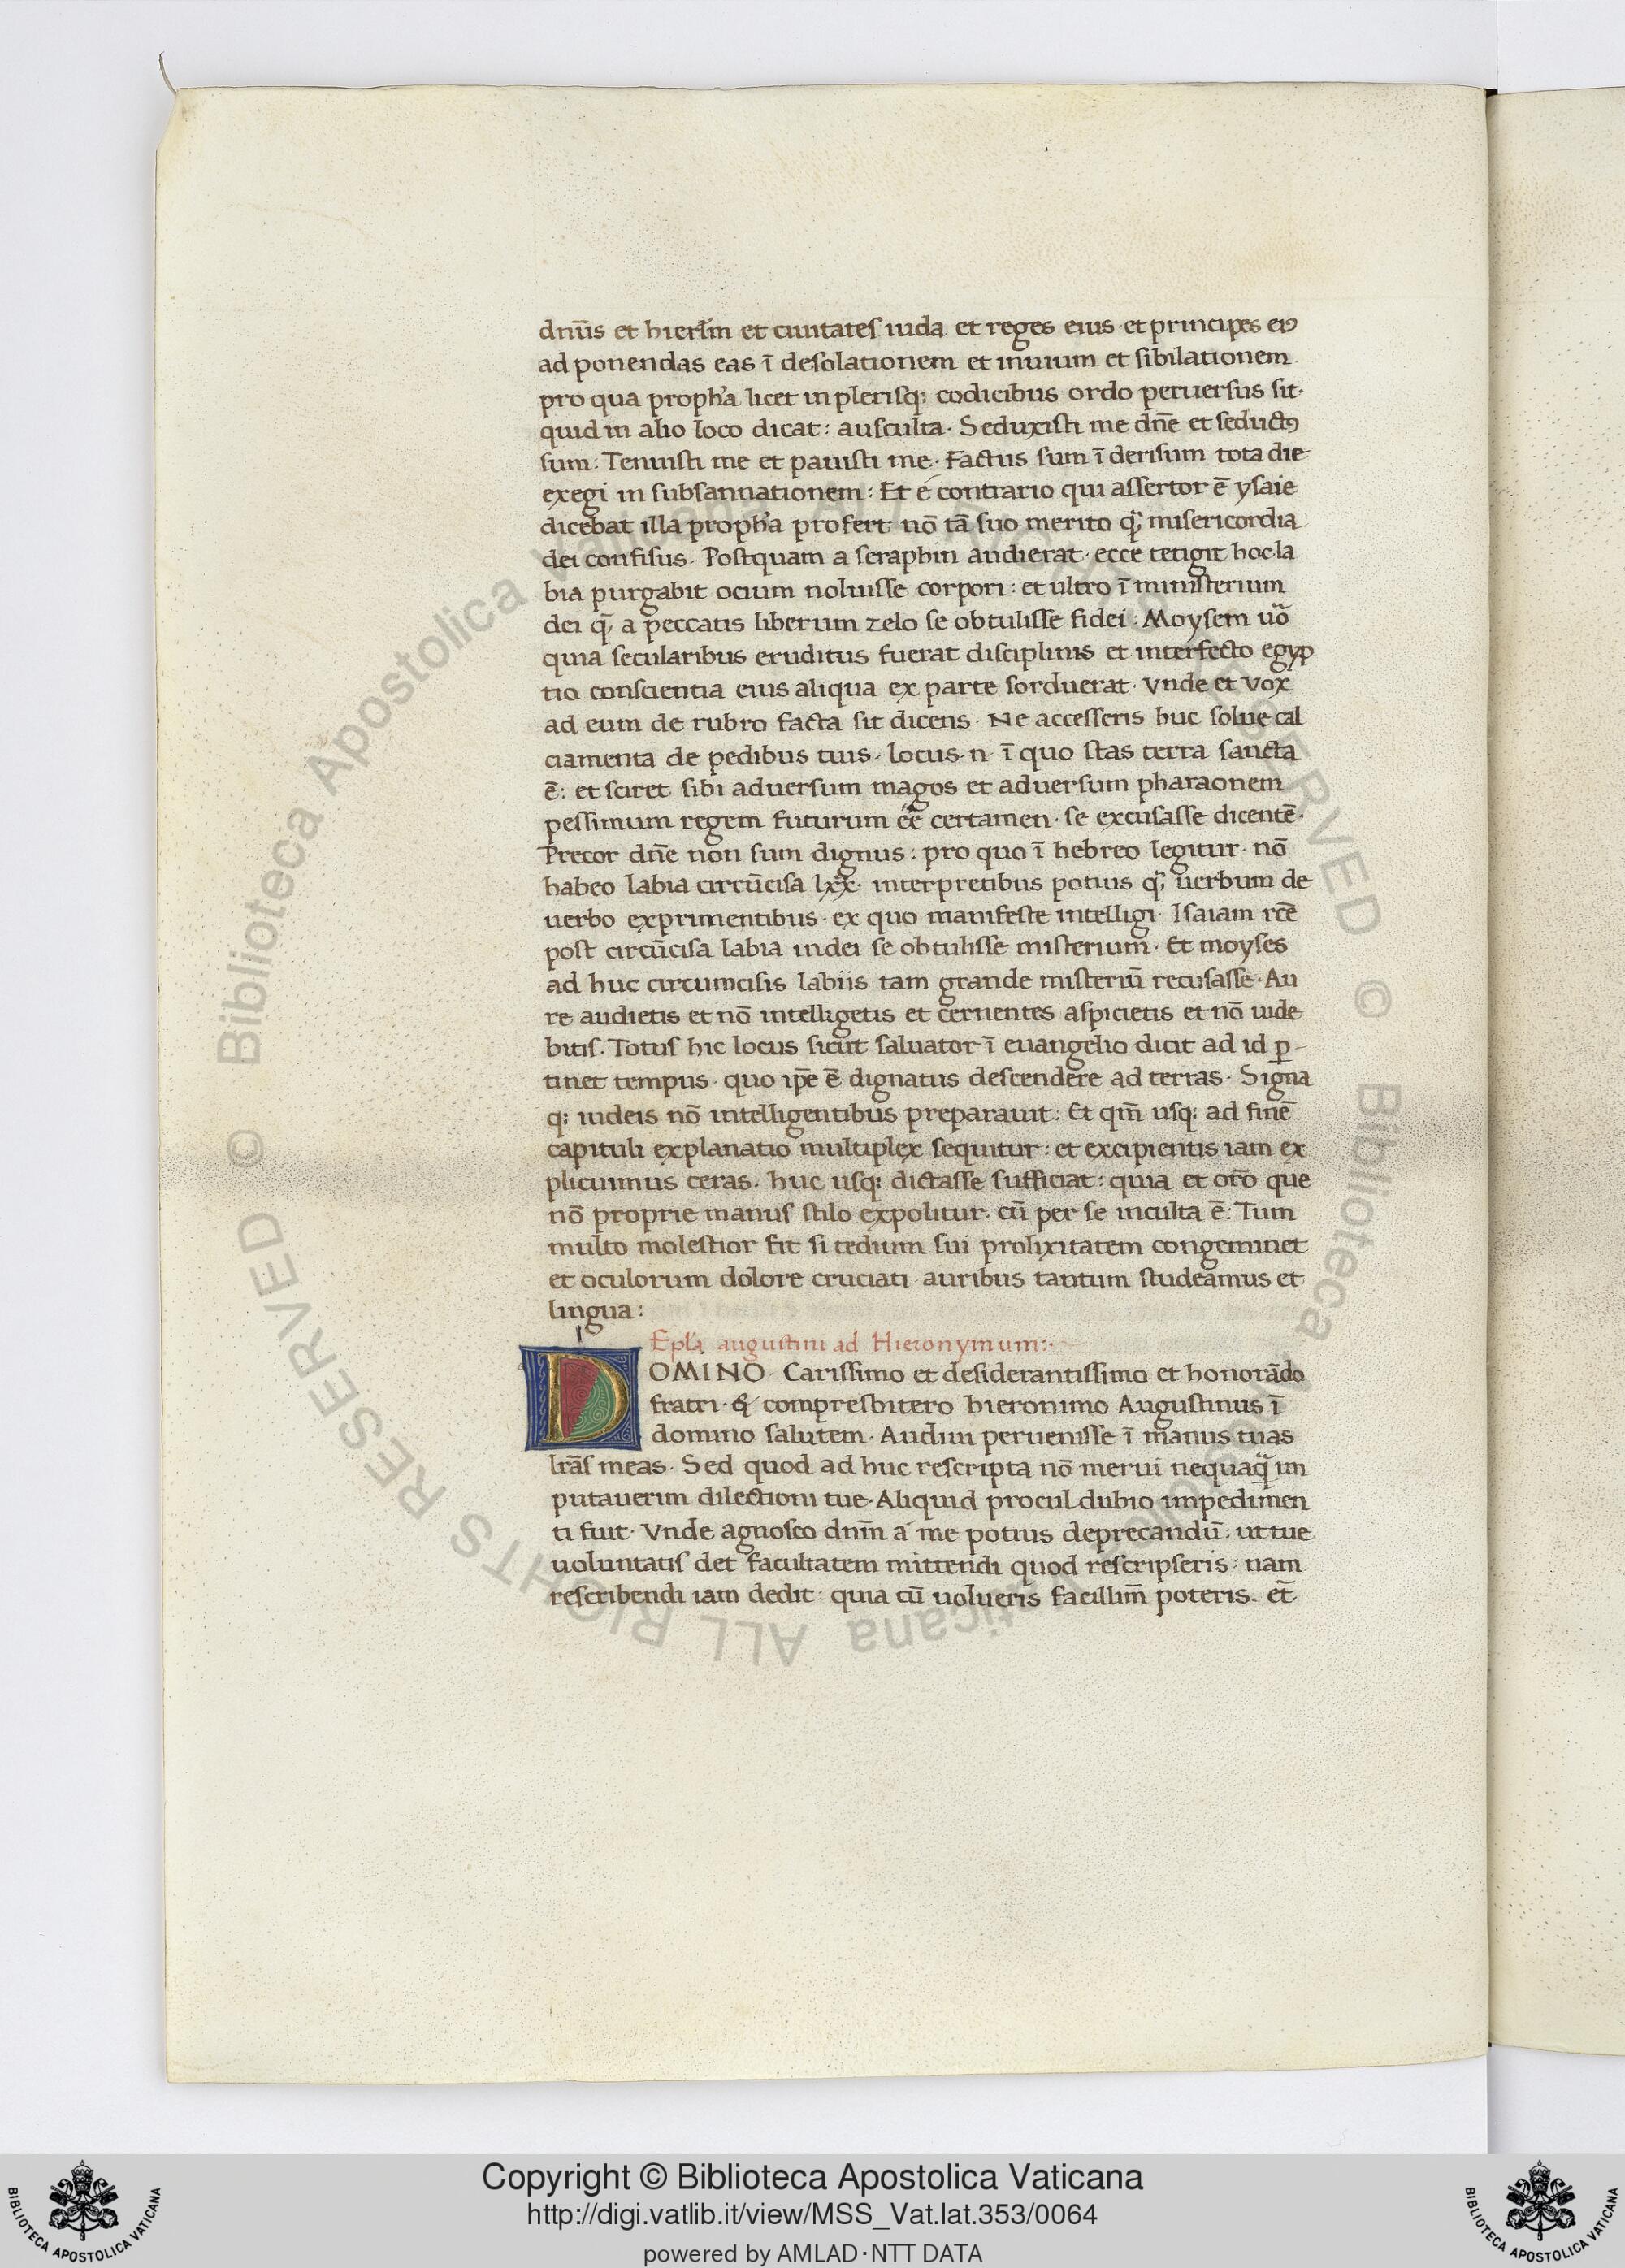 dnūs et hierłm et ciuitates iuda et reges eius et principes eiꝰ
ad ponendas eas ī desolationem et inuium et sibilationem
pro qua proph̓a licet in plerisq; codicibus ordo peruersus sit·
quid in alio loco dicat: ausculta· Seduxisti me dn̄e et seductꝰ
sum: Tenuisti me et pauisti me· Factus sum ī derisum tota die
exegi in subsannationem: Et é contrario qui assertor ē ysaie
dicebat illa proph̓a profert nō tā suo merito q̄; misericordia
dei confisus· Postquam a seraphin audierat· ecce tetigit hoc la
bia purgabit ocium noluisse corpori: et ultro ī ministerium
dei q̄, a peccatis liberum zelo se obtulisse fidei: Moysem uō
quia secularibus eruditus fuerat disciplinis et interfecto egyp
tio conscientia eius aliqua ex parte sorduerat· Vnde et vox
ad eum de rubro facta sit dicens· Ne accesseris huc solue cal
ciamenta de pedibus tuis· locus·n· ī quo stas terra sancta
ē: et sciret sibi aduersum magos et aduersum pharaonem
pessimum regem futurum eē certamen· se excusasse dicentē·
Precor dn̄e non sum dignus: pro quo ī hebreo legitur· nō
habeo labia circūcisa lxx· interpretibus potius q̄; uerbum de
uerbo exprimentibus· ex quo manifeste intelligi· Isaiam rcē
post circūcisa labia in dei se obtulisse misterium· Et moyses
ad huc circumcisis labiis tam grande misteriū recusasse· Au
re audietis et nō intelligetis et cernentes aspicietis et nō uide
bitis· Totus hic locus sicut saluator ī euangelio dicit ad id ꝑ-
tinet tempus· quo ip̄e ē dignatus descendere ad terras· Signa
q; iudeis nō intelligentibus preparauit: Et qm̄ usq; ad finē
capituli explanatio multiplex sequitur: et excipientis iam ex
plicuimus ceras· huc usq; dictasse sufficiat: quia et or̄o que
nō proprie manus stilo expolitur· cū per se inculta ē: Tum
multo molestior fit si tedium sui prolixitatem congeminet
et oculorum dolore cruciati auribus tantum studeamus et
lingua:
Epl̓a augustini ad Hieronymum:·
DOMINO· Carissimo et desiderantissimo et honorādo
fratri· & compresbitero hieronimo Augustinus ī
domino salutem· Audiui peruenisse ī manus tuas
lr̄as meas· Sed quod ad huc rescripta nō merui nequaq̄ im
putauerim dilectioni tue· Aliquid procul dubio impedimen
ti fuit· Vnde agnosco dnm̄ á me potius deprecandū: ut tue
uoluntatis det facultatem mittendi quod rescripseris: nam
rescribendi iam dedit: quia cū uolueris facillim̄ poteris· et̄
Copyright © Biblioteca Apostolica Vaticana
http://digi.vatlib.it/view/MSS_Vat.lat.353/0064
powered by AMLAD·NTT DATA
BIBLIOTECA APOSTOLICA VATICANA
BIBLIOTECA APOSTOLICA VATICANA
© Biblioteca Apostolica Vaticana ALL RIGHTS RESERVED
© Biblioteca Apostolica Vaticana ALL RIGHTS RESERVED